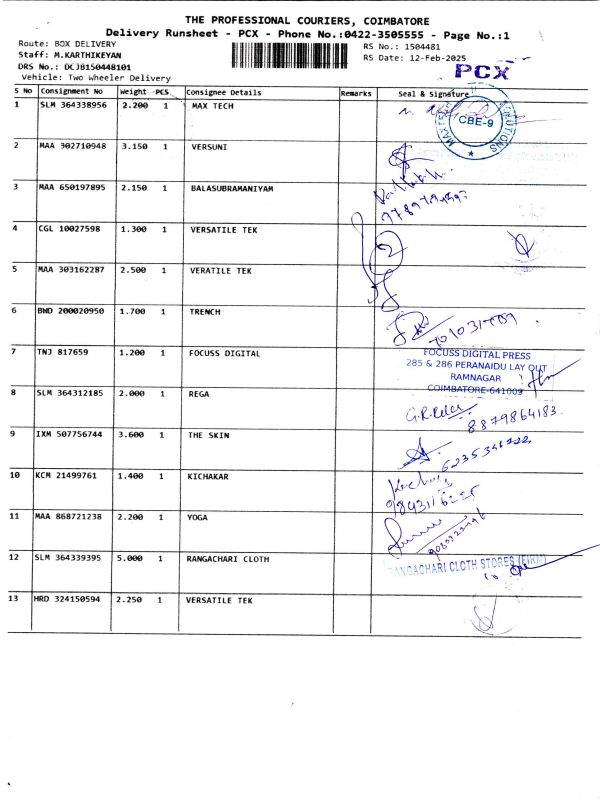 THE PROFESSIONAL COURIERS, COIMBATORE
Delivery Runsheet - PCX - Phone No.:0422-3505555 - Page No.:1
Route: BOX DELIVERY
RS No.: 1504481
Staff: M.KARTHIKEYAN
RS Date: 12-Feb-2025
DRS No.: DCJB150448101
PCX
Vehicle: Two Wheeler Delivery
S No Consignment No Weight PCS Consignee Details Remarks Seal & Signature
1 SLM 364338956 2.200 1 MAX TECH
MAX TECH SOLUTIONS
CBE-9
2 MAA 302710948 3.150 1 VERSUNI
3 MAA 650197895 2.150 1 BALASUBRAMANIYAM
4 CGL 10027598 1.300 1 VERSATILE TEK
5 MAA 303162287 2.500 1 VERATILE TEK
6 BWD 200020950 1.700 1 TRENCH
7 TNJ 817659 1.200 1 FOCUSS DIGITAL
FOCUSS DIGITAL PRESS
285 & 286 PERANAIDU LAY OUT
RAMNAGAR
COIMBATORE-641009
8 SLM 364312185 2.000 1 REGA
8879864183
9 IXM 507756744 3.600 1 THE SKIN
10 KCM 21499761 1.400 1 KICHAKAR
11 MAA 868721238 2.200 1 YOGA
12 SLM 364339395 5.000 1 RANGACHARI CLOTH
RANGACHARI CLOTH STORES (FIRM)
13 HRD 324150594 2.250 1 VERSATILE TEK